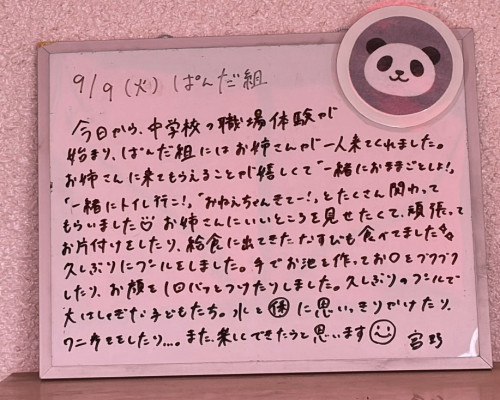 9/9（火）ぱんだ組
今日から、中学校の職場体験が
始まり、ぱんだ組にはお姉さんが一人来てくれました。
お姉さんに来てもらえることが嬉しくて「一緒におままごとしよ!」
「一緒にトイレ行こ!」、「おねえちゃんきてー!」、とたくさん関わって
もらいました お姉さんにいいところを見せたくて、頑張って
お片付けをしたり、給食に出てきたなすびも食べてました
久しぶりにプールをしました。手でお池を作ってお口をブクブク
したり、お顔を1回パッとつけたりしました。久しぶりのプールで
大はしゃぎな子どもたち。水を に思いっきりかけたり、
ワニ歩きをしたり...。また楽しくできたらと思います 宮野